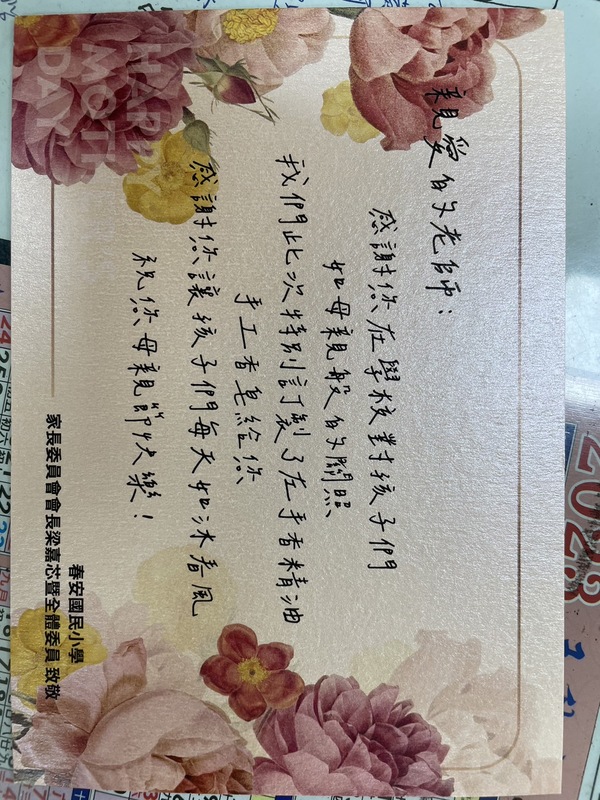 HAPPY
MOTH
DAY
親愛的老師：
感謝您在學校對孩子們
如母親般的關照
我們此次特別訂製了左手香精油
手工香皂給您
感謝您讓孩子們每天如沐春風
祝您母親節快樂！
春安國民小學
家長委員會會長梁嘉芯暨全體委員 致敬
2023